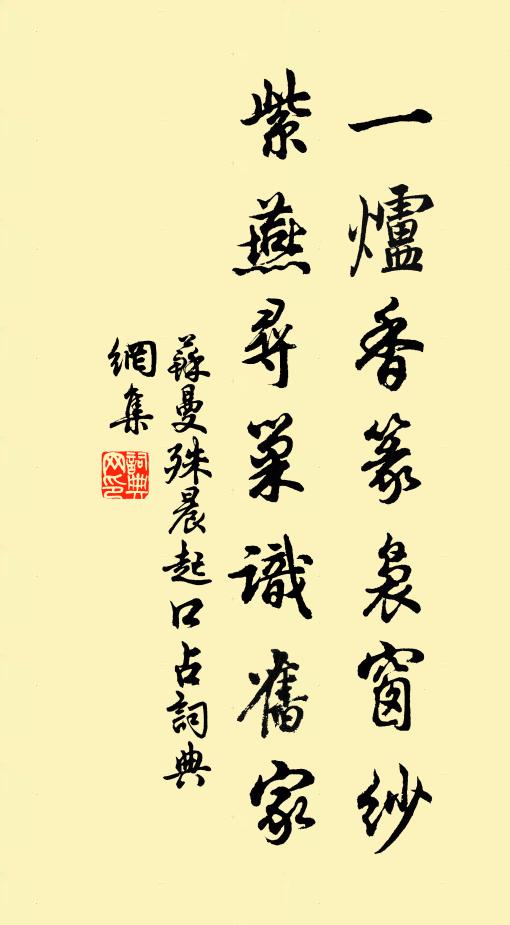 一爐香篆裊窗紗
紫燕尋巢識舊家
蘇曼殊晨起口占詞典
網集
詞典
网印